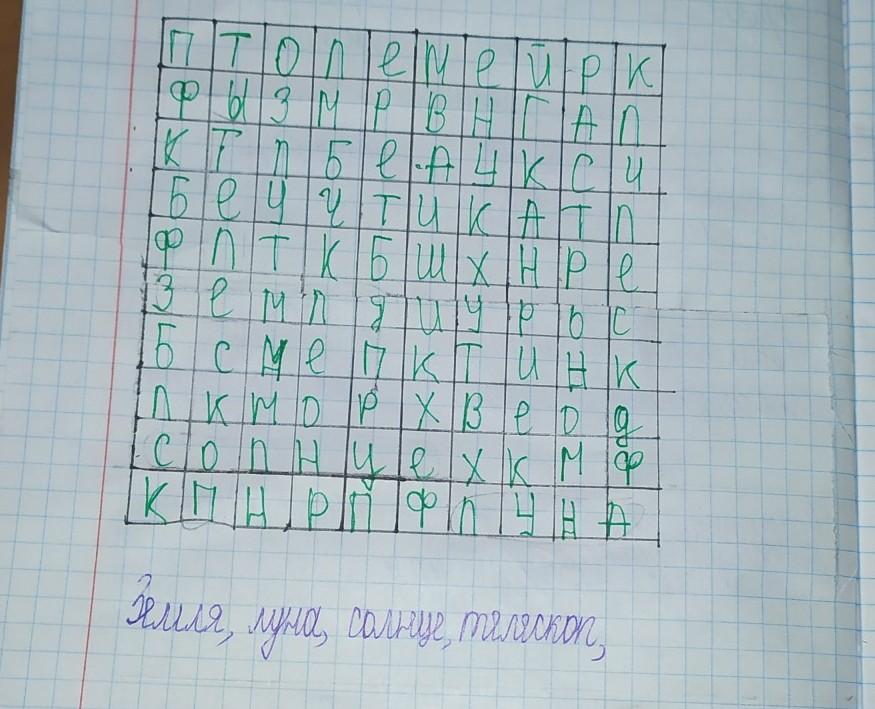 П Т О Л е М е й Р К
Ф Ы З М Р В Н Г А П
К Т Л Б е А У К С И
Б е У У Т И К А Т Л
Ф Л Т К Б Ш Х Н Р е
З е м л я и У Р О С
Б С М е П К Т И Н К
Л К М О Р Х В е О Д
С О Л Н Ц е Х К М Ф
К П Н Р П Ф Л У Н А
Земля, луна, солнце, теляскоп,